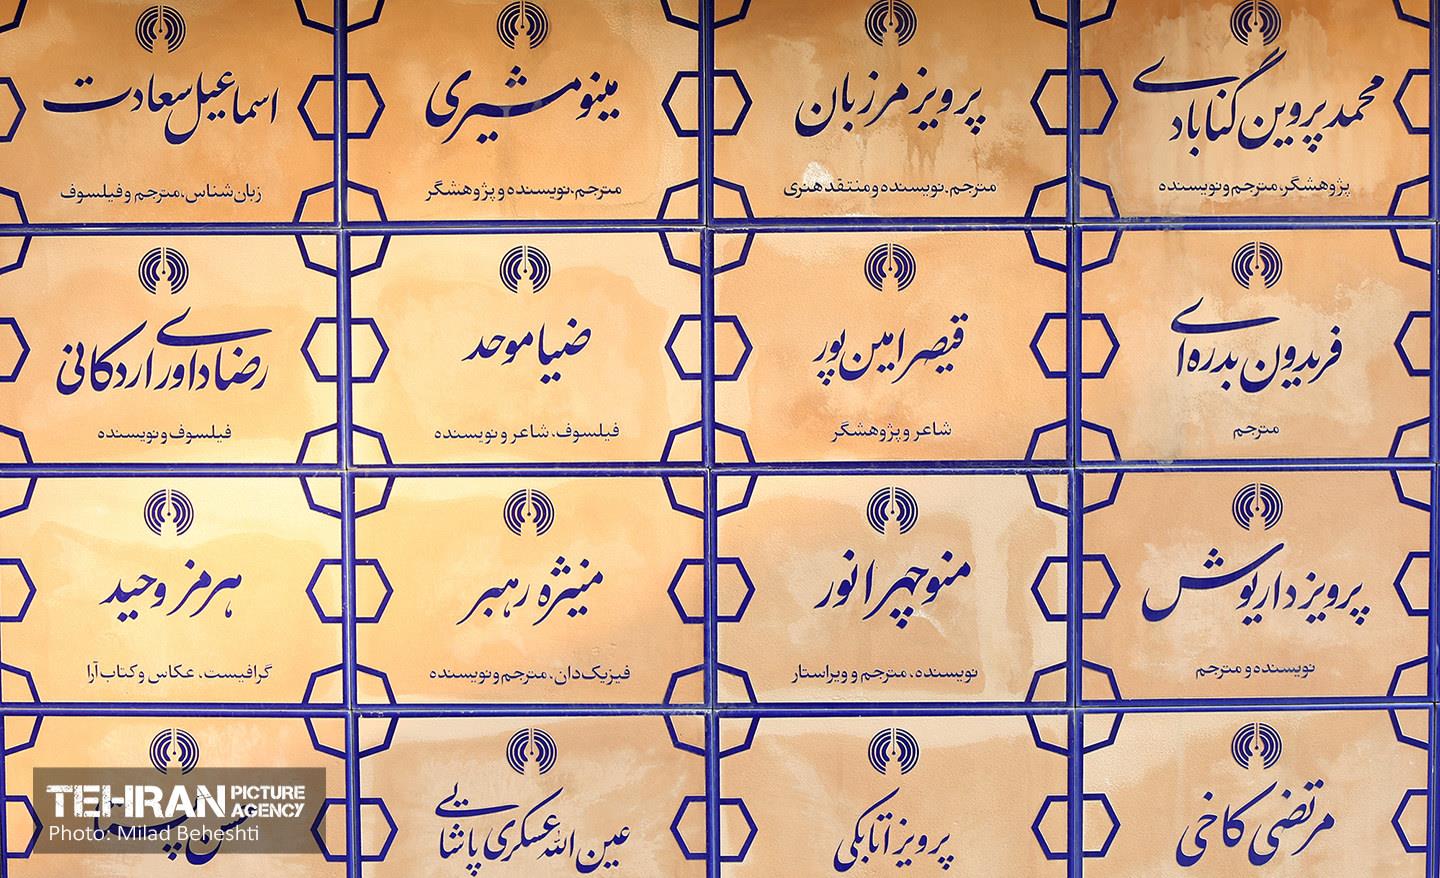 محمد پروین گنابادی
پژوهشگر، مترجم و نویسنده
پرویز مرزبان
مترجم، نویسنده و منتقد هنری
مینو مشیری
مترجم، نویسنده و پژوهشگر
اسماعیل سعادت
زبان‌شناس، مترجم و فیلسوف
فریدون بدره‌ای
مترجم
قیصر امین‌پور
شاعر و پژوهشگر
ضیا موحد
فیلسوف، شاعر و نویسنده
رضا داوری اردکانی
فیلسوف و نویسنده
پرویز داریوش
نویسنده و مترجم
منوچهر انور
نویسنده، مترجم و ویراستار
منیژه رهبر
فیزیک‌دان، مترجم و نویسنده
هرمز وحید
گرافیست، عکاس و کتاب‌آرا
مرتضی کاخی
پرویز اتابکی
عین‌الله عسکری پاشایی
TEHRAN PICTURE AGENCY
Photo: Milad Beheshti